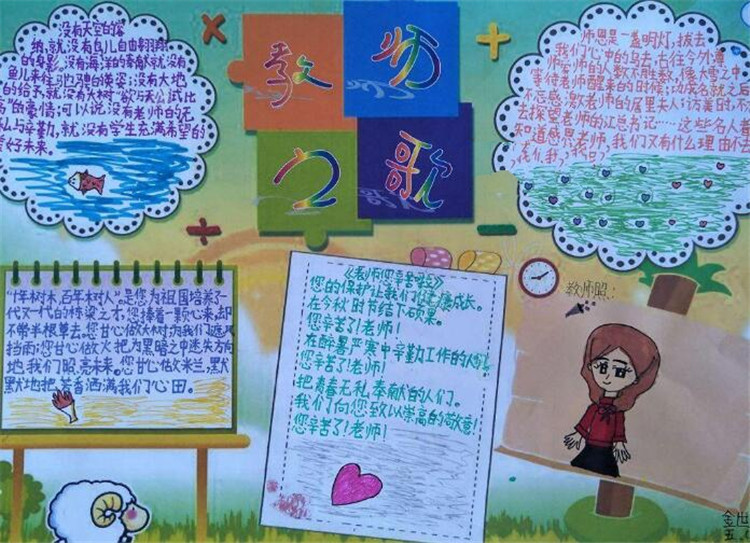 教师
之歌
没有天空的容
纳,就没有鸟儿自由翱翔
的身影;没有海洋的奉献就没有
鱼儿来往驰骋的英姿;没有大地
的给予就没有大树欲与天公试比
高的豪情;可以说没有老师的无
私与辛勤,就没有学生充满希望的
美好未来。
师恩是一盏明灯,拨去
我们心中的乌云,古往今来尊
师爱师的人数不胜数,像大雪之中
等待老师醒来的时候;功成名就之后
不忘感激老师的居里夫人;访美时,不
去探望老师的江总书记……这些名人
知道感恩老师,我们又有什么理由不去
“十年树木,百年树人”是您为祖国培养了一
代又一代的栋梁之才,您捧着一颗心来,却
不带半根草去。您甘心做大树为我们遮风
挡雨;您甘心做火把为黑暗之中迷失方向
地我们照亮未来。您甘心做米兰,默
默地把芳香洒满我们心田。
《老师您辛苦了》
您的保护让我们健康成长。
在今秋时节结下硕果。
您辛苦了!老师!
在酷暑严寒中辛勤工作的人们
您辛苦了!老师!
把青春无私奉献的人们。
我们向您致以崇高的敬意!
您辛苦了!老师!
教师照: